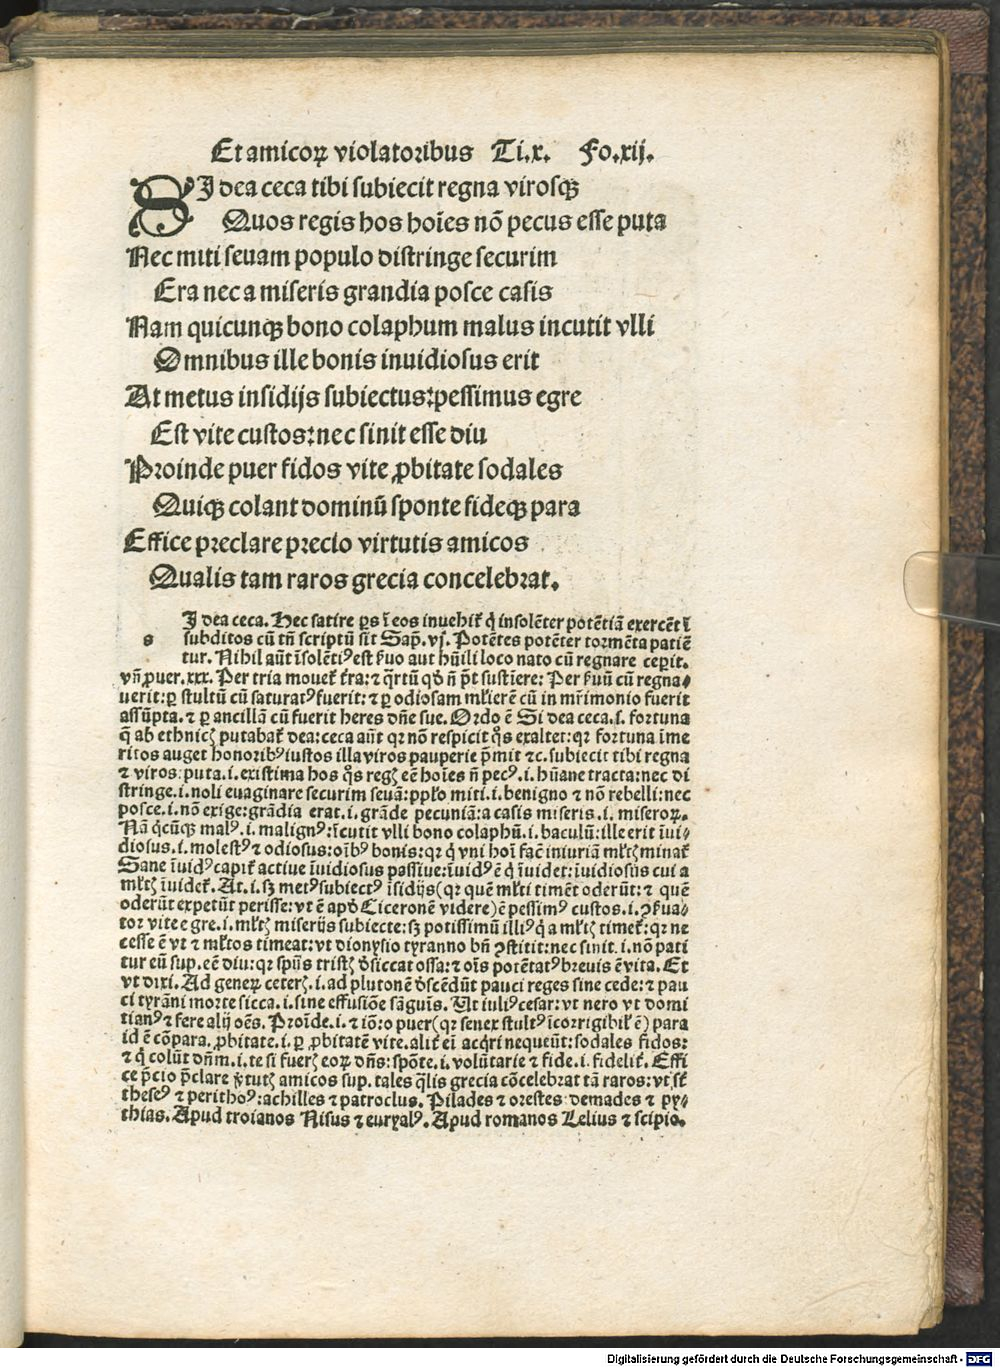 Et amicoꝝ violatoribus Ti.x. Fo.xij.
SI dea ceca tibi subiecit regna virosqꝫ
Quos regis hos hoĩes nõ pecus esse puta
Nec miti seuam populo distringe securim
Era nec a miseris grandia posce casis
Nam quicunqꝫ bono colaphum malus incutit vlli
Omnibus ille bonis inuidiosus erit
At metus insidijs subiectus:pessimus egre
Est vite custos:nec sinit esse diu
Proinde puer fidos vite ꝓbitate sodales
Quiqꝫ colant dominũ sponte fideqꝫ para
Effice preclare precio virtutis amicos
Qualis tam raros grecia concelebrat.
I dea ceca. Hec satire ꝑs ĩ eos inuehit̃ q̃ insolẽter potẽtiã exercẽt ĩ
s subditos cũ tñ scriptũ sit Sap̃. vj. Potẽtes potẽter tormẽta patiẽ
tur. Nihil aũt ĩsolẽtiꝰ est ẜuo aut hũili loco nato cũ regnare ceperit.
vñ ꝓuer.xxx. Per tria mouet̃ t̃ra: ⁊ q̃rtũ qd̃ ñ p̃t sustĩere: Per ẜuũ cũ regna⸗
uerit: ꝑ stultũ cũ saturatꝰ fuerit: ⁊ ꝑ odiosam ml̃ierẽ cũ in mr̃imonio fuerit
assũpta. ⁊ ꝑ ancillã cũ fuerit heres dñe sue. Ordo ẽ Si dea ceca.s. fortuna
q̃ ab ethnicꝭ putabat̃ dea: ceca aũt qꝛ nõ respicit q̃s exaltet: qꝛ fortuna ĩme
ritos auget honoribꝰ iustos illa viros pauperie p̃mit ⁊c. subiecit tibi regna
⁊ viros: puta.i. existima hos q̃s regꝭ eẽ hoĩes ñ pecꝰ.i. hũane tracta: nec di
stringe.i. noli euaginare securim seuã: ppl̃o miti.i. benigno ⁊ nõ rebelli: nec
posce.i. nõ exige: grãdia erat.i. grãde pecuniã: a casis miseris.i. miseroꝝ.
Nã q̃cũqꝫ malꝰ.i. malignꝰ: ĩcutit vlli bono colaphũ.i. baculũ: ille erit ĩui⸗
diosus.i. molestꝰ ⁊ odiosus: oĩbꝰ bonis: qꝛ q̃ vni hoĩ fac̃ iniuriã ml̃tꝭ minat̃
Sane ĩuidꝰ capit̃ actiue ĩuidiosus passiue: ĩuidꝰ ẽ q̃ ĩuidet: ĩuidiosus cui a
ml̃tꝭ ĩuidet̃. At.i. sꝫ metꝰ subiectꝰ ĩsidijs (qꝛ quẽ ml̃ti timẽt oderũt: ⁊ quẽ
oderũt expetũt perisse: vt ẽ apd̃ Ciceronẽ videre) ẽ pessimꝰ custos.i. ꝯẜua⸗
tor vite egre.i. ml̃tꝭ miserijs subiecte: sꝫ potissimũ illiꝰ q̃ a ml̃tꝭ timet̃: qꝛ ne
cesse ẽ vt ⁊ ml̃tos timeat: vt dionysio tyranno bñ ꝯstitit: nec sinit.i. nõ pati
tur eũ sup. eẽ diu: qꝛ spũs tristꝭ d̃siccat ossa: ⁊ oĩs potẽtatꝰ breuis ẽ vita. Et
vt dixi. Ad generꝝ ceterꝭ.i. ad plutonẽ d̃scẽdũt pauci reges sine cede: ⁊ pau
ci tyrãni morte sicca.i. sine effusiõe sãguĩs. Ut iuliꝰ cesar: vt nero vt domi
tianꝰ ⁊ fere alij oẽs. Proĩde.i. ⁊ iõ: o puer (qꝛ senex stultꝰ ĩcorrigibil̃ ẽ) para
id ẽ cõpara. ꝓbitate.i. ꝑ ꝓbitatẽ vite. alit̃ eĩ acq̃ri nequeũt: sodales fidos:
⁊ q̃ colũt dñm.i. te si fuerꝭ eoꝝ dñs: spõte.i. volũtarie ⁊ fide.i. fidelit̃. Effi
ce p̃cio p̃clare ỹtutꝭ amicos sup. tales q̃lis grecia cõcelebrat tã raros: vt sũt
theseꝰ ⁊ perithoꝰ: achilles ⁊ patroclus. Pilades ⁊ orestes: demades ⁊ py⸗
thias. Apud troianos Nisus ⁊ euryalꝰ. Apud romanos Lelius ⁊ scipio.
Digitalisierung gefördert durch die Deutsche Forschungsgemeinschaft - DFG